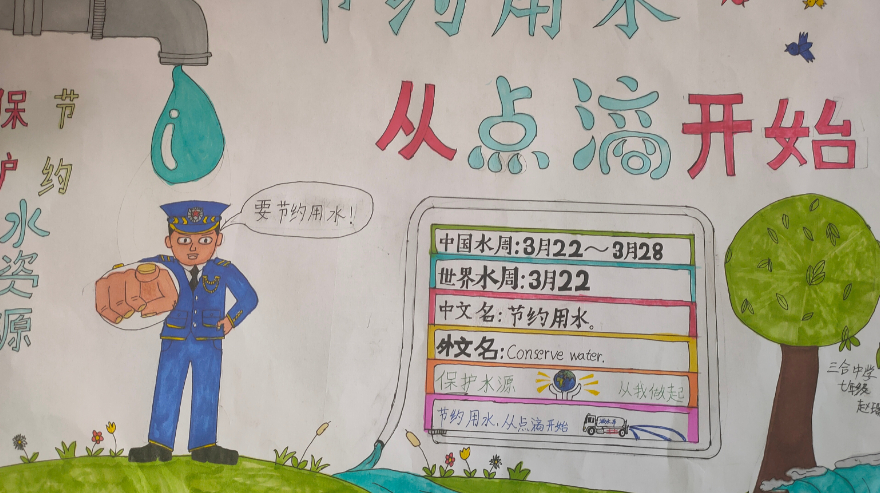 节约用水
从点滴开始
节约
保护水资源
要节约用水!
中国水周:3月22~3月28
世界水周:3月22
中文名:节约用水。
外文名:Conserve water.
保护水源 从我做起
节约用水,从点滴开始
洒水车
三合中学
七年级